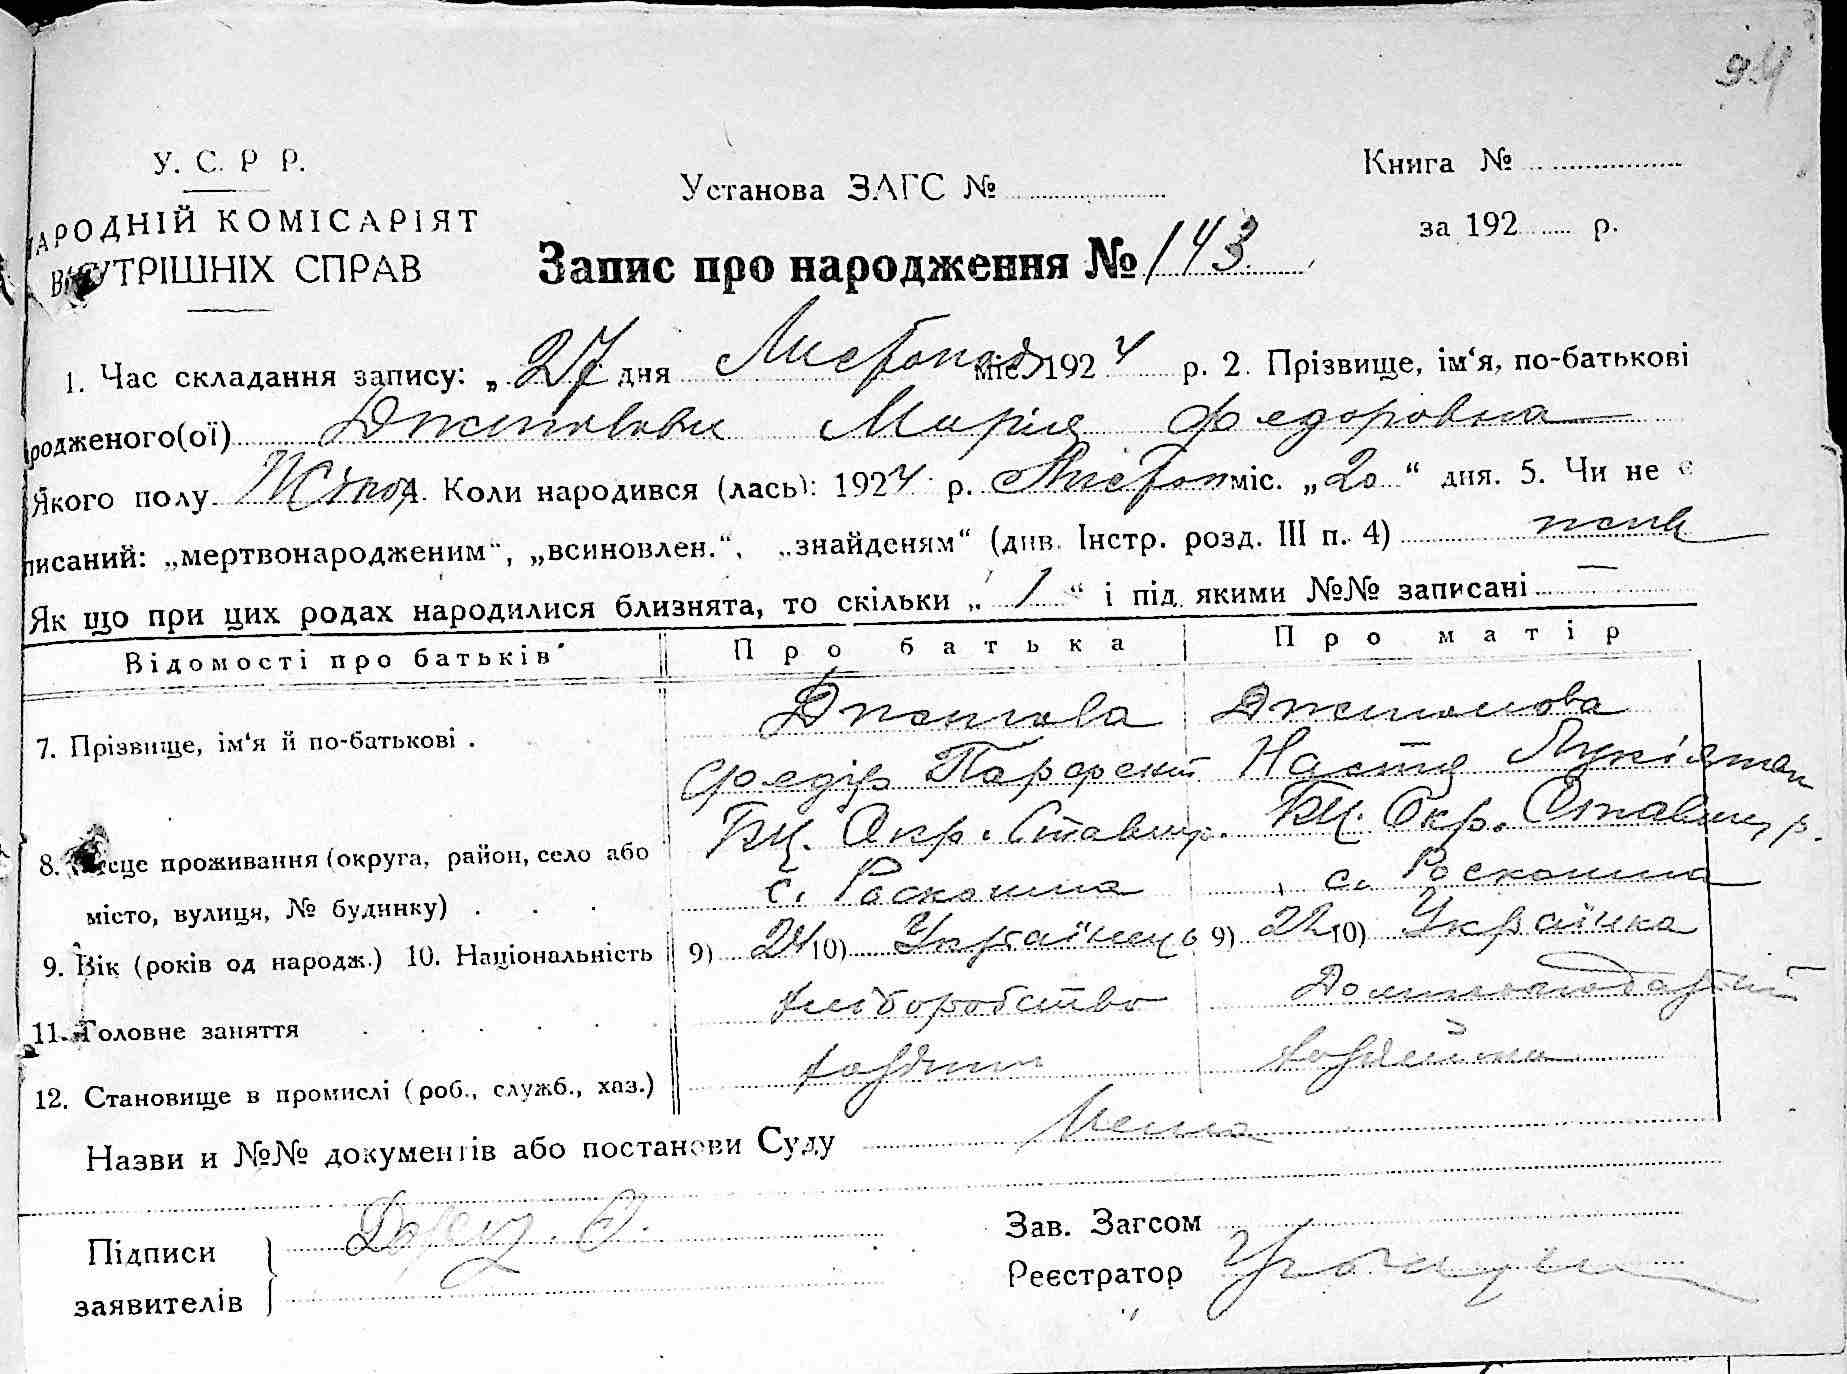 94
У. С. Р Р.
Книга №
Установа ЗАГС №
АРОДНІЙ КОМІСАРІЯТ
за 192 р.
ВНУТРІШНІХ СПРАВ
Запис про народження № 143
1. Час складання запису: „27 дня Листопад міс. 1924 р. 2. Прізвище, ім‘я, по-батькові
родженого(ої) Марія Федоровна
Якого полу Жіноч 4. Коли народився (лась): 1924 р. Листоп міс. „20“ дня. 5. Чи не є
писаний: „мертвонародженим“, „всиновлен.“, „знайденям“ (див. Інстр. розд. III п. 4)
Як що при цих родах народилися близнята, то скільки „1“ і під якими №№ записані —
Відомості про батьків
Про батька
Про матір
7. Прізвище, ім‘я й по-батькові .
Федір Парфент
Настя Лукіян
8. Місце проживання (округа, район, село або
місто, вулиця, № будинку) . . .
БЦ. Окр. Ставищ р.
с. Роскошна
БЦ. Окр. Ставищ р.
с. Роскошна
9. Вік (років од народж.) 10. Національність
9) 24 10) Українець
9) 22 10) Українка
11. Головне заняття . . . . . .
хліборобство
12. Становище в промислі (роб., служб., хаз.)
хазяїн
хазяйка
Назви и №№ документів або постанови Суду Нема
Підписи
заявителів
Зав. Загсом
Реєстратор